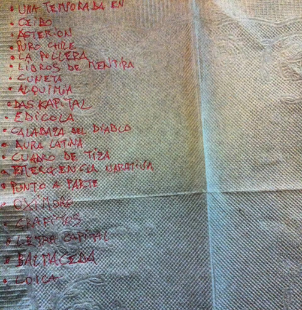 • UNA TEMPORADA EN
• OXIDO
• AFTER ON
• PURO CHILE
• LA POLLERA
• LIBROS DE MENTIRA
• CUNETA
• ALQUIMIA
• DAS KAPITAL
• EDICOLA
• CALABAZA DEL DIABLO
• AURA LATINA
• CUADRO DE TIZA
• EMERGENCIA NARRATIVA
• PUNTO A PARTE
• OXIMORO
•
• LETRA CAPITAL
• BALMACEDA
• LOICA